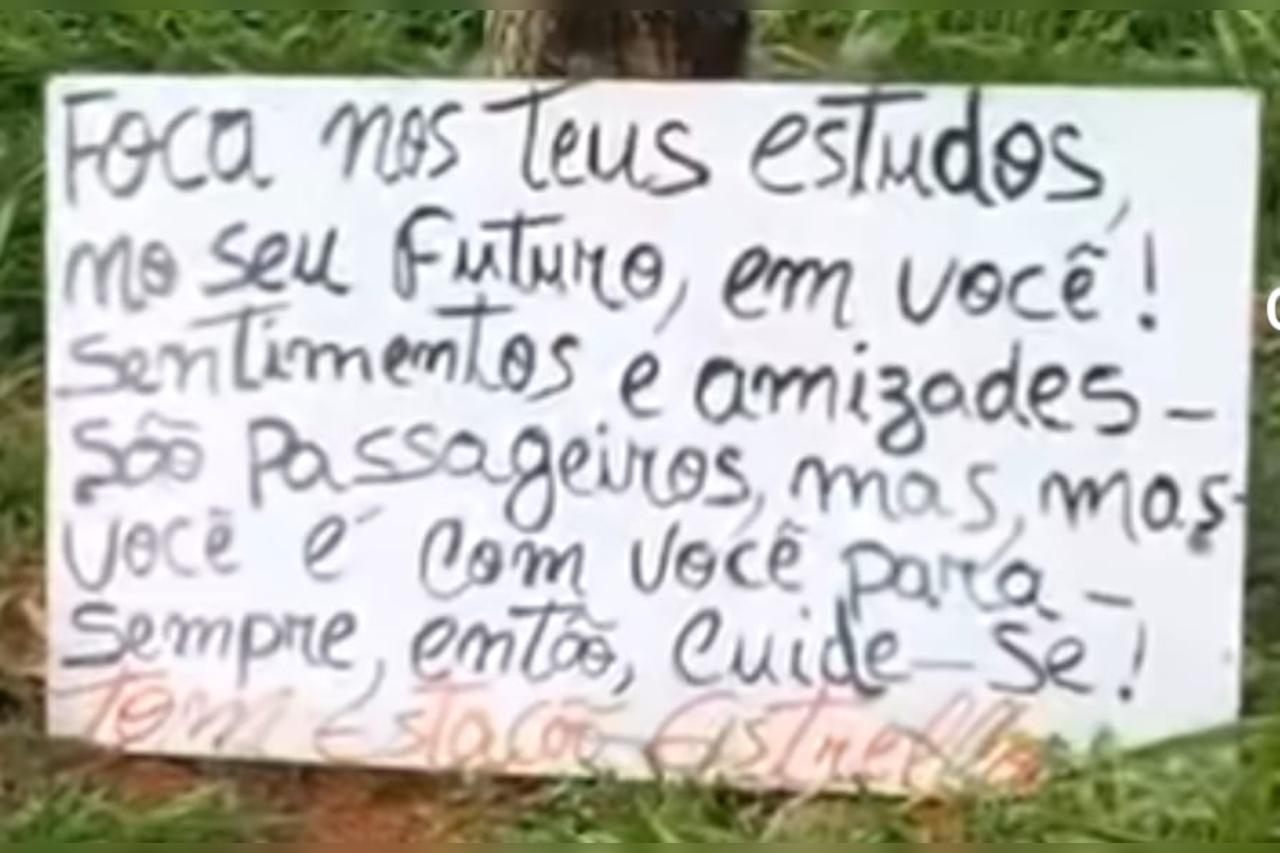 Foca nos teus estudos,
no seu futuro, em você!
sentimentos e amizades -
São passageiros, mas, mas
você é com você para -
sempre, então, cuide-se!
Tom Estação Estrella